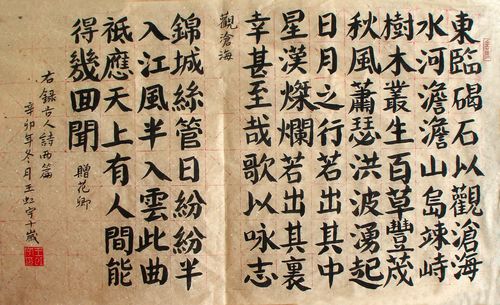 東臨碣石以觀滄海
水河澹澹山島竦峙
樹木叢生百草豐茂
秋風蕭瑟洪波湧起
日月之行若出其中
星漢燦爛若出其裏
幸甚至哉歌以咏志
觀滄海
錦城絲管日紛紛半
入江風半入雲此曲
祗應天上有人間能
得幾回聞
贈花卿
右錄古人詩兩篇
辛卯年冬月王虹宇十歲